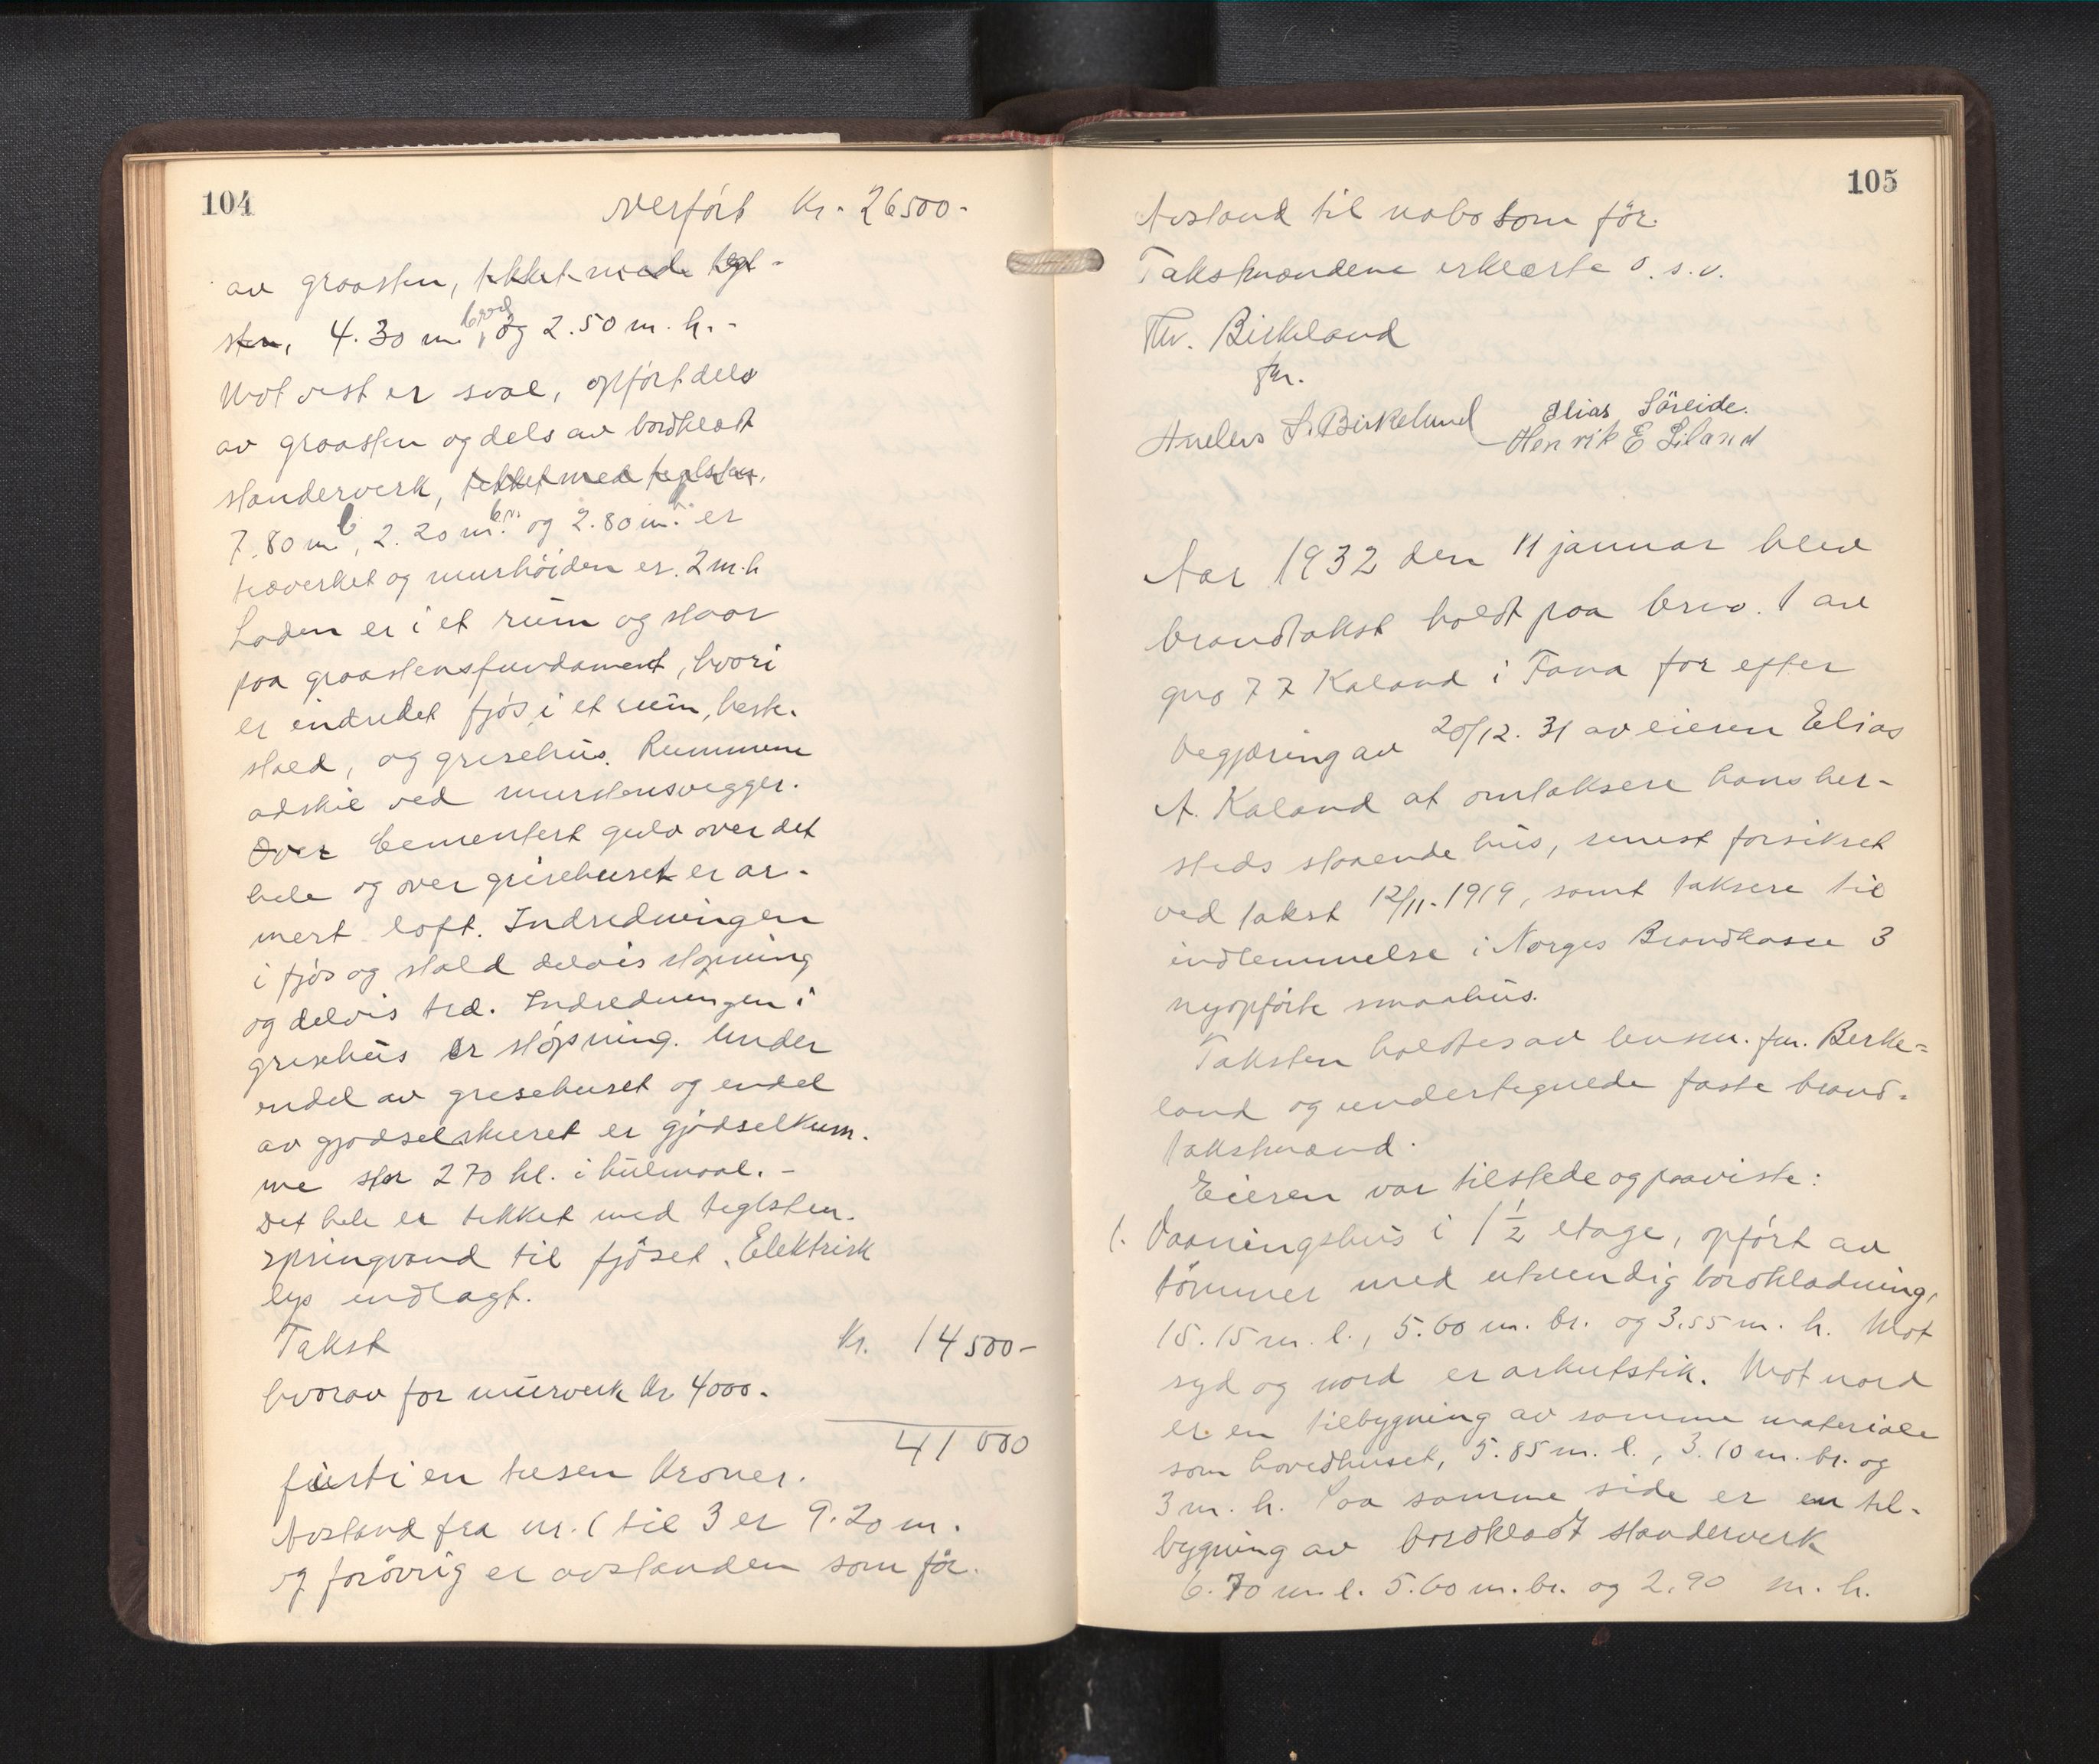 104
overført Kr. 26500-
av graasten, tekket med tegl-
sten, 4.30 m. bred, og 2.50 m. h. -
Mot vest er sval, opført dels
av graasten og dels av bordklædt
standerverk, tekket med teglsten.
7.80 m. l, 2.20 m. br. og 2.80 m. h. er
træverket og murhøiden er 2 m. h
Laden er i et rum og staar
paa graastensfundament, hvori
er indredet fjøs i et rum, heste-
stald, og grisehus. Rummene
adskil ved murstensvegger.
Over Cementert gulv over det
hele og over grisehuset er ar-
mert loft. Indredningen
i fjøs og stald delvis støpning
og delvis træ. Indredningen i
grisehus er støpning. Under
endel av grisehuset og endel
av gjødselskuret er gjødselkum-
me stor 270 hl. i hulmaal. -
Det hele er tekket med teglsten.
Springvand til fjøset. Elektrisk
lys indlagt.
Takst Kr. 14500-
hvorav for murverk Kr 4000.
41000
førtien tusen Kroner.
Avstand fra nr. 1 til 3 er 9.20 m.
og forøvrig er avstanden som før.
105
Avstand til nabo som før.
Takstmændene erklærte o. s. v.
Thv. Birkeland
fm.
Anders S. Birkelund Elias Søreide.
Henrik E Liland
Aar 1932 den 11 januar blev
brandtakst holdt paa brno. 1 av
gno 77 Kaland i Fana for efter
begjæring av 20/12. 31 av eieren Elias
A. Kaland at omtaksere hans her-
steds staaende hus, senest forsikret
ved takst 12/11. 1919, samt taksere til
indlemmelse i Norges Brandkasse 3
nyopførte smaahus.
Taksten holdtes av lensm. fm. Berke-
land og undertegnede faste brand-
takstmænd.
Eieren var tilstede og paaviste:
1. Vaaningshus i 1 1/2 etage, opført av
tømmer med utvendig bordklædning,
15.15 m. l., 5.60 m. br. og 3.55 m. h. Mot
syd og nord er arkutstik. Mot nord
er en tilbygning av samme materiale
som hovedhuset, 5.85 m. l., 3.10 m. br. og
3 m. h. Paa samme side er en til-
bygning av bordklædt standerverk
6.70 m. l. 5.60 m. br. og 2.90 m. h.